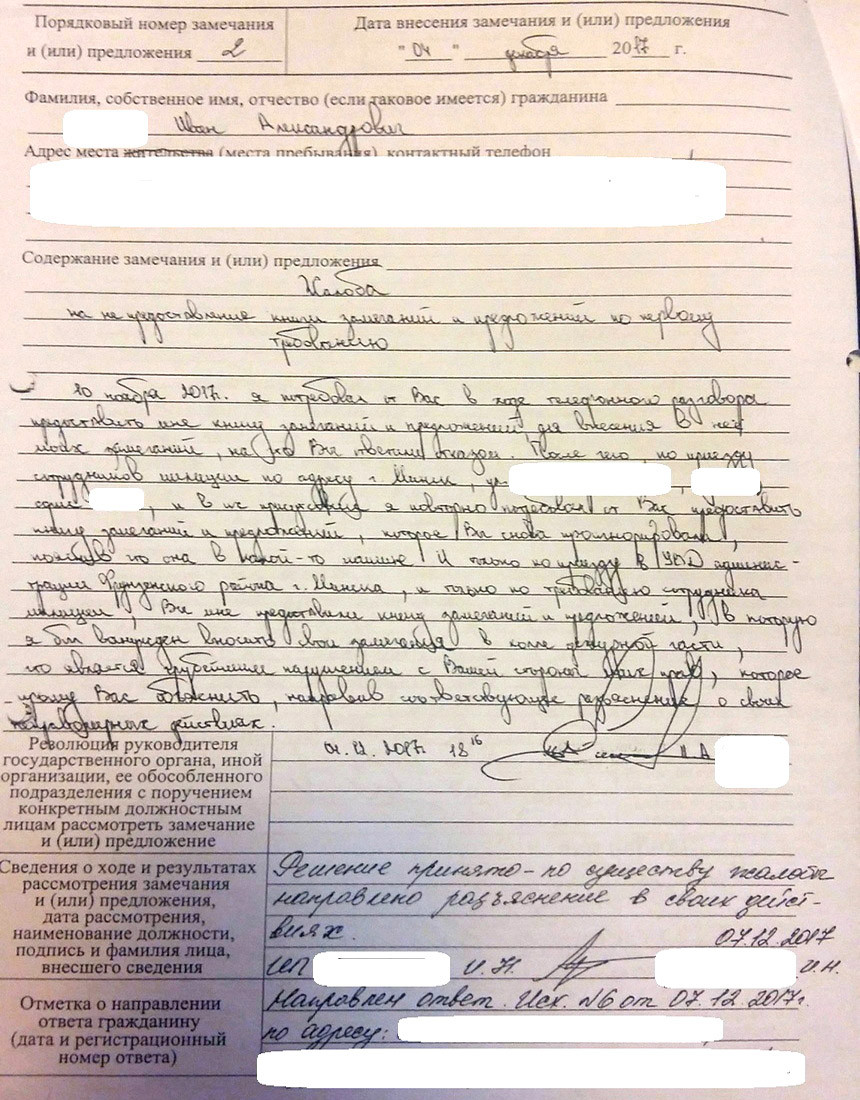 Порядковый номер замечания
и (или) предложения 2
Дата внесения замечания и (или) предложения
"04" декабря 2017 г.
Фамилия, собственное имя, отчество (если таковое имеется) гражданина
Иван Александрович
Адрес места жительства (места пребывания), контактный телефон
Содержание замечания и (или) предложения
Жалоба
на не предоставление книги замечаний и предложений по первому
требованию
20 ноября 2017г. я потребовал от Вас в ходе телефонного разговора
предоставить мне книгу замечаний и предложений для внесения в неё
моих замечаний, на что Вы ответили отказом. После чего, по приезду
сотрудников милиции по адресу г. Минск, ул.
офис , и в их присутствии я повторно потребовал от Вас предоставить
книгу замечаний и предложений, которое Вы снова проигнорировали,
пояснив что она в какой-то машине. И только по приезду в УВД админис-
трации Фрунзенского района г. Минска, и только по требованию сотрудника
милиции, Вы мне предоставили книгу замечаний и предложений, в которую
я был вынужден вносить свои замечания в холле дежурной части,
что является грубейшим нарушением с Вашей стороны моих прав, которое
прошу Вас объяснить, направив соответствующее разъяснение о своих
неправомерных действиях.
Резолюция руководителя
государственного органа, иной
организации, ее обособленного
подразделения с поручением
конкретным должностным
лицам рассмотреть замечание
и (или) предложение
04.12.2017г. 18 16 И.А.
Сведения о ходе и результатах
рассмотрения замечания
и (или) предложения,
дата рассмотрения,
наименование должности,
подпись и фамилия лица,
внесшего сведения
Решение принято - по существу жалобы
направлено разъяснение в своих дейст-
виях.
07.12.2017
ИП И.Н. И.Н.
Отметка о направлении
ответа гражданину
(дата и регистрационный
номер ответа)
Направлен ответ. Исх. N6 от 07.12.2017г.
по адресу: